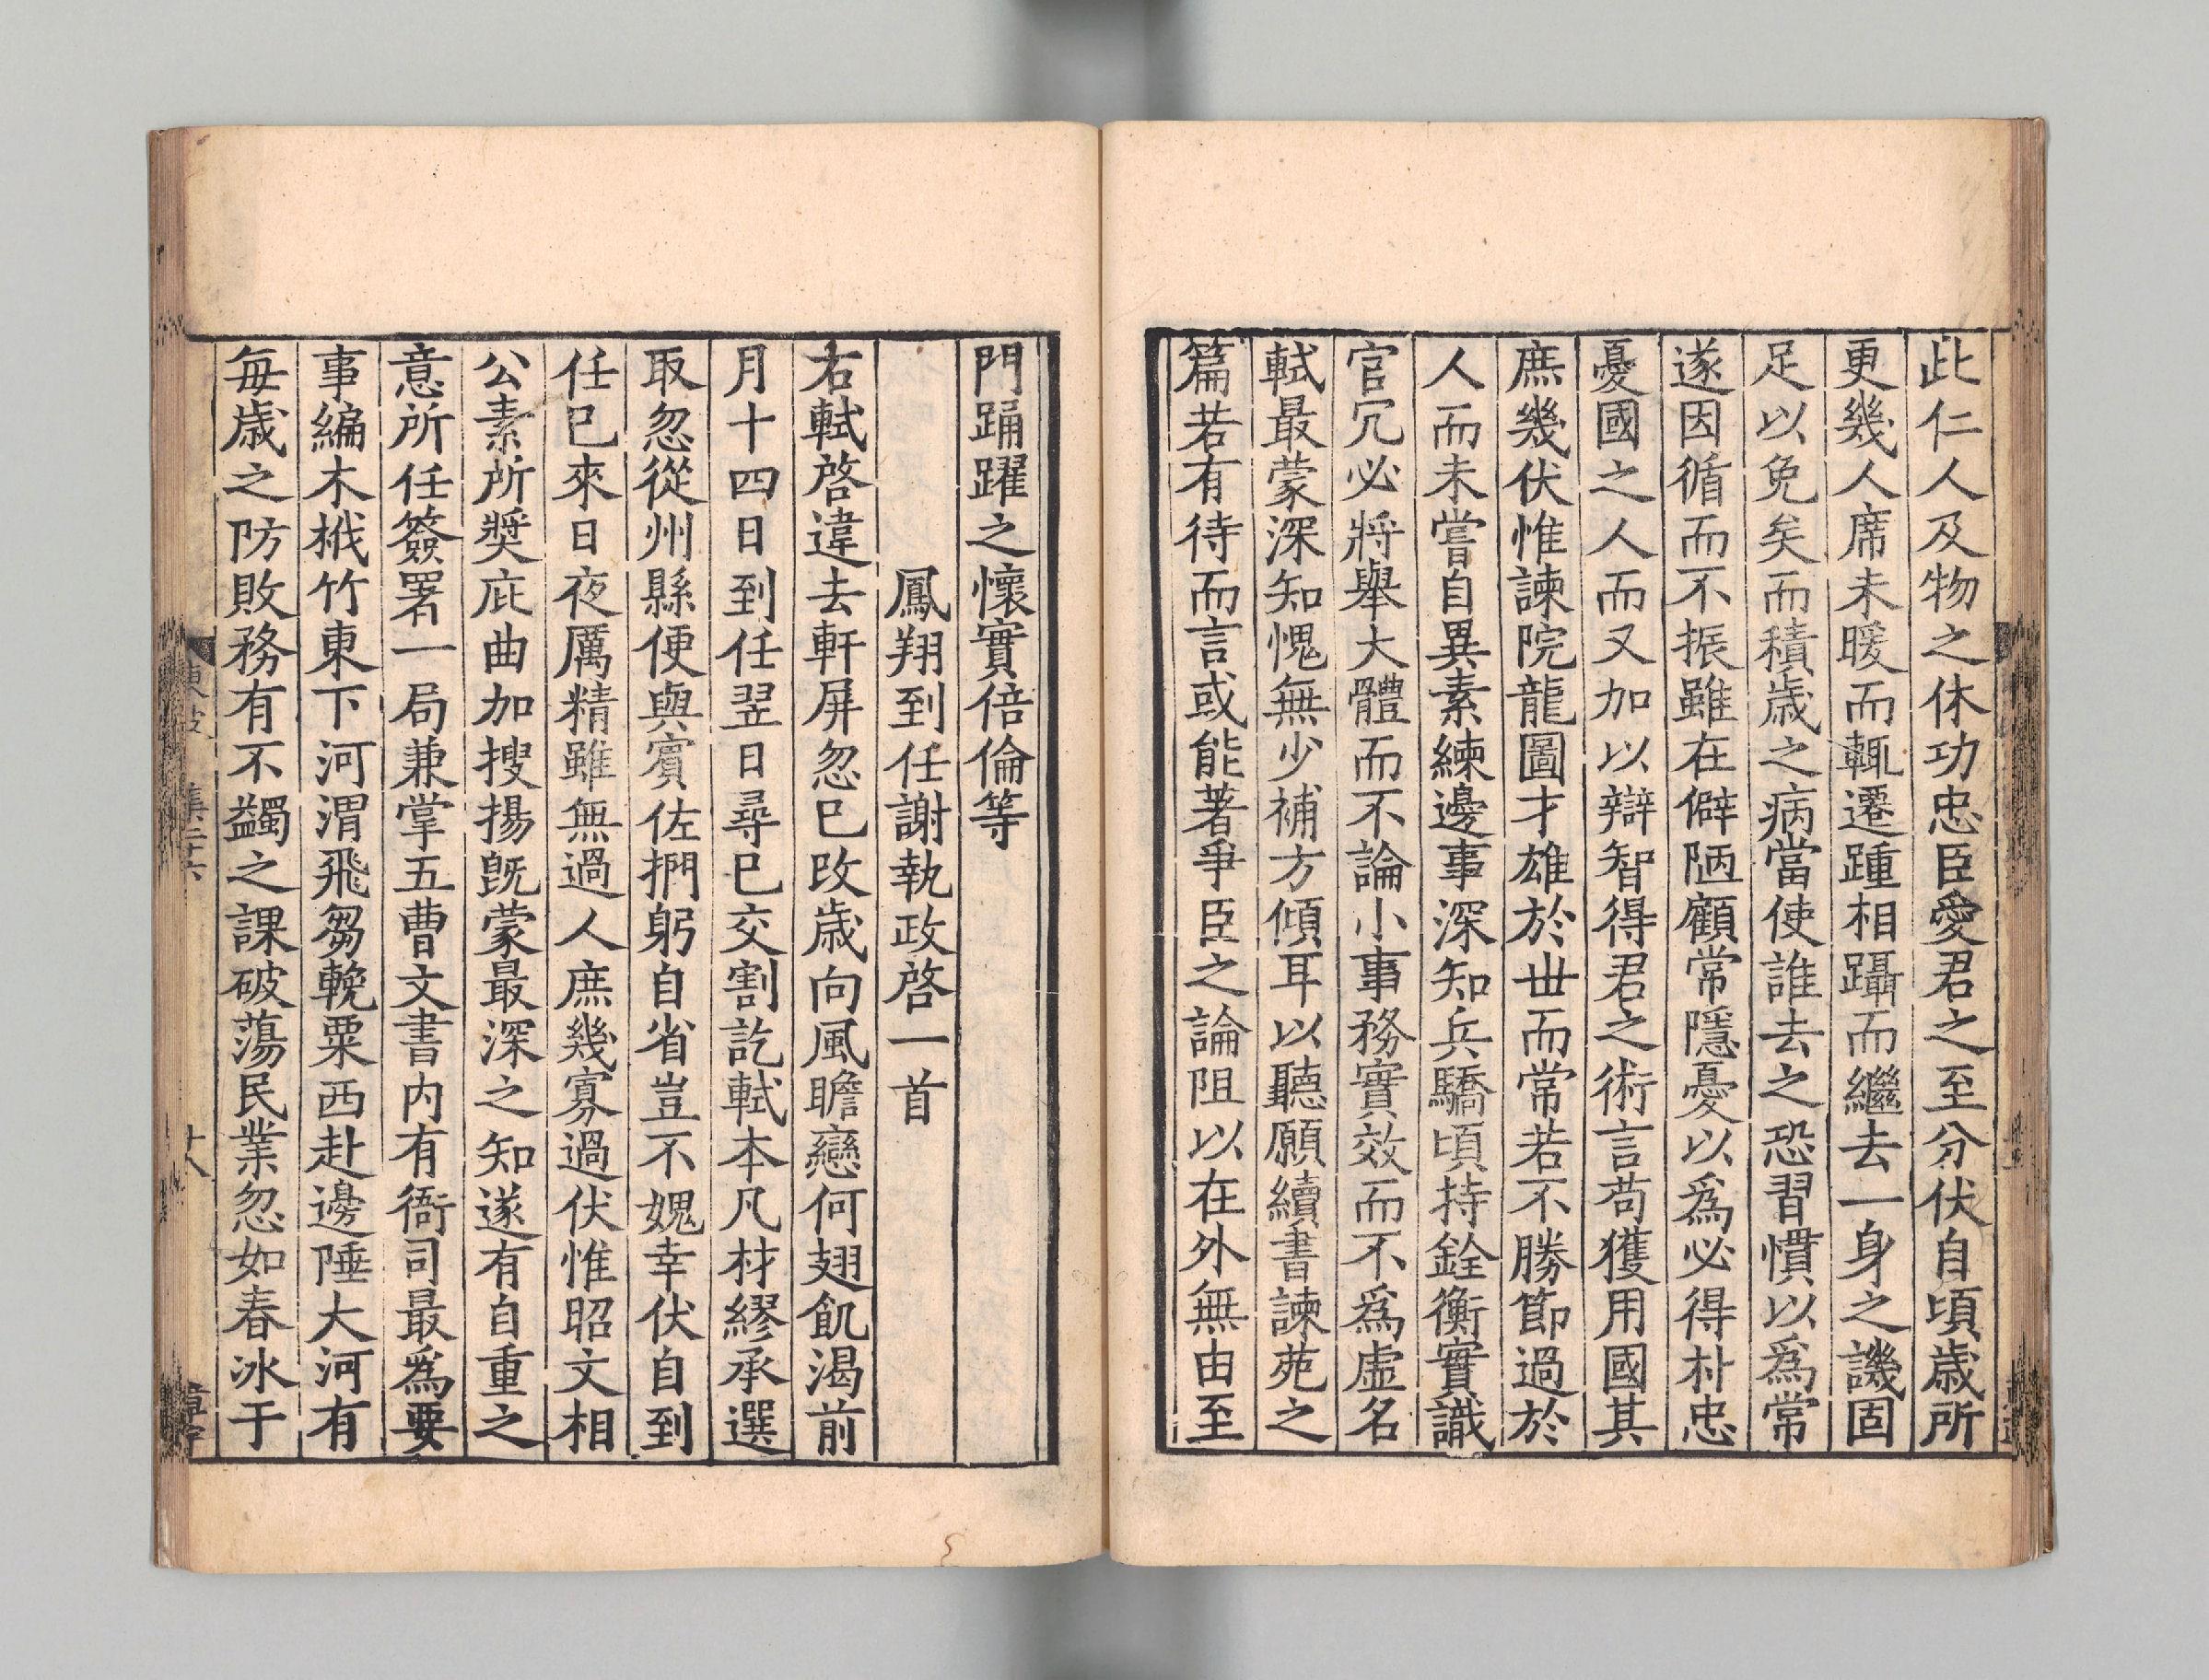 此仁人及物之休功忠臣愛君之至分伏自頃歳所
更幾人席未暖而輒遷踵相躡而繼去一身之譏固
足以免矣而積歳之病當使誰去之恐習慣以爲常
遂因循而不振雖在僻陋顧常隱憂以爲必得朴忠
憂國之人而又加以辯智得君之術言苟獲用國其
庶幾伏惟諫院龍圖才雄於丗而常若不勝節過於
人而未嘗自異素練邊事深知兵驕頃持銓衡實識
官冗必將舉大體而不論小事務實效而不爲虛名
軾最蒙深知愧無少補方傾耳以聽願續書諫苑之
篇若有待而言或能著爭臣之論阻以在外無由至
門踊躍之懷實倍倫等
鳳翔到任謝執政啓一首
右軾啓違去軒屏忽已改歳向風瞻戀何翅飢渴前
月十四日到任翌日尋已交割訖軾本凡材繆承選
取忽從州縣便與賓佐捫躬自省豈不媿幸伏自到
任已來日夜厲精雖無過人庶幾寡過伏惟昭文相
公素所奬庇曲加搜揚旣蒙最深之知遂有自重之
意所任簽署一局兼掌五曹文書内有衙司最爲要
事編木栰竹東下河渭飛芻輓粟西赴邊陲大河有
每歳之防敗務有不蠲之課破蕩民業忽如春冰于
東坡 集二十六
廿八